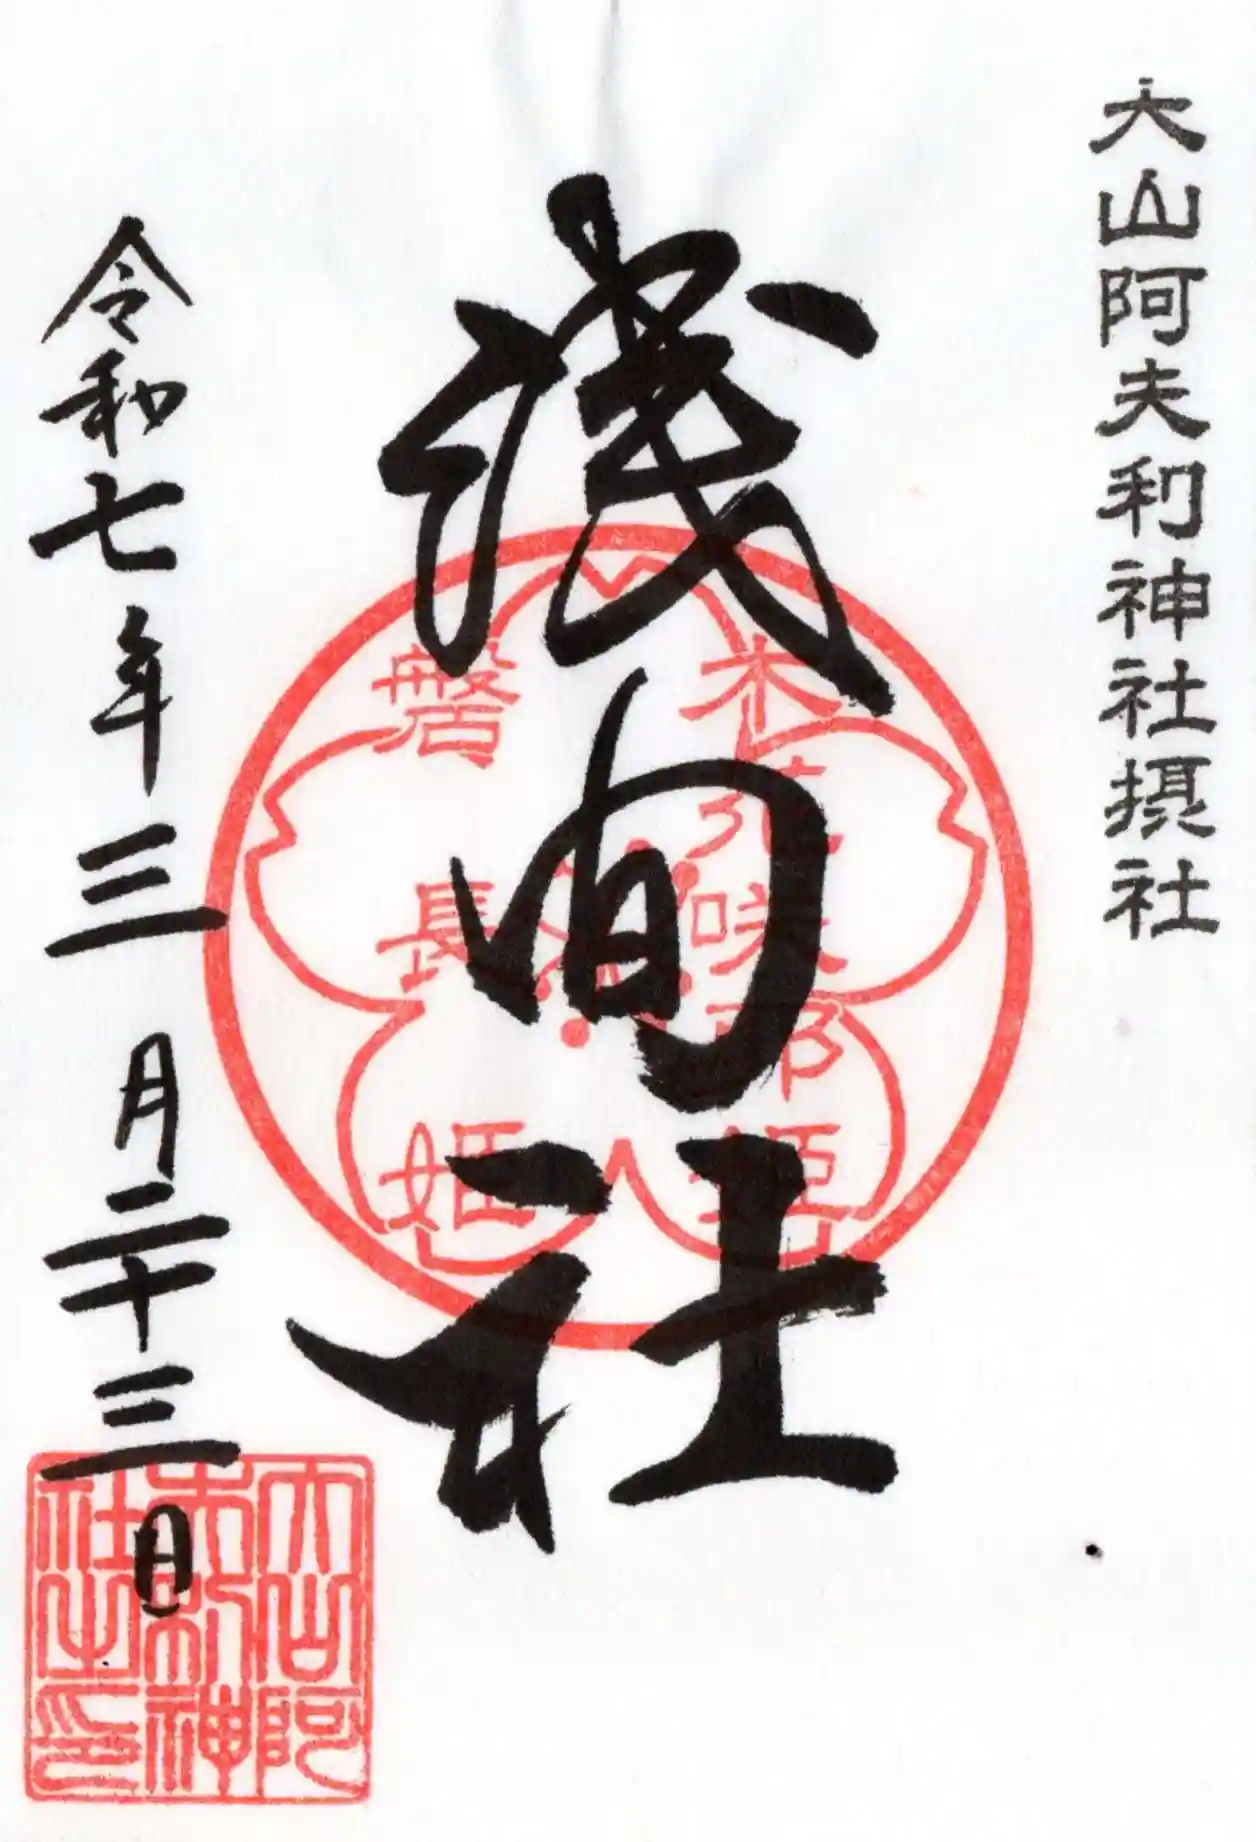 大山阿夫利神社摂社
浅間社
木花咲耶姫
磐長姫
令和七年三月二十三日
大山阿夫利神社之印